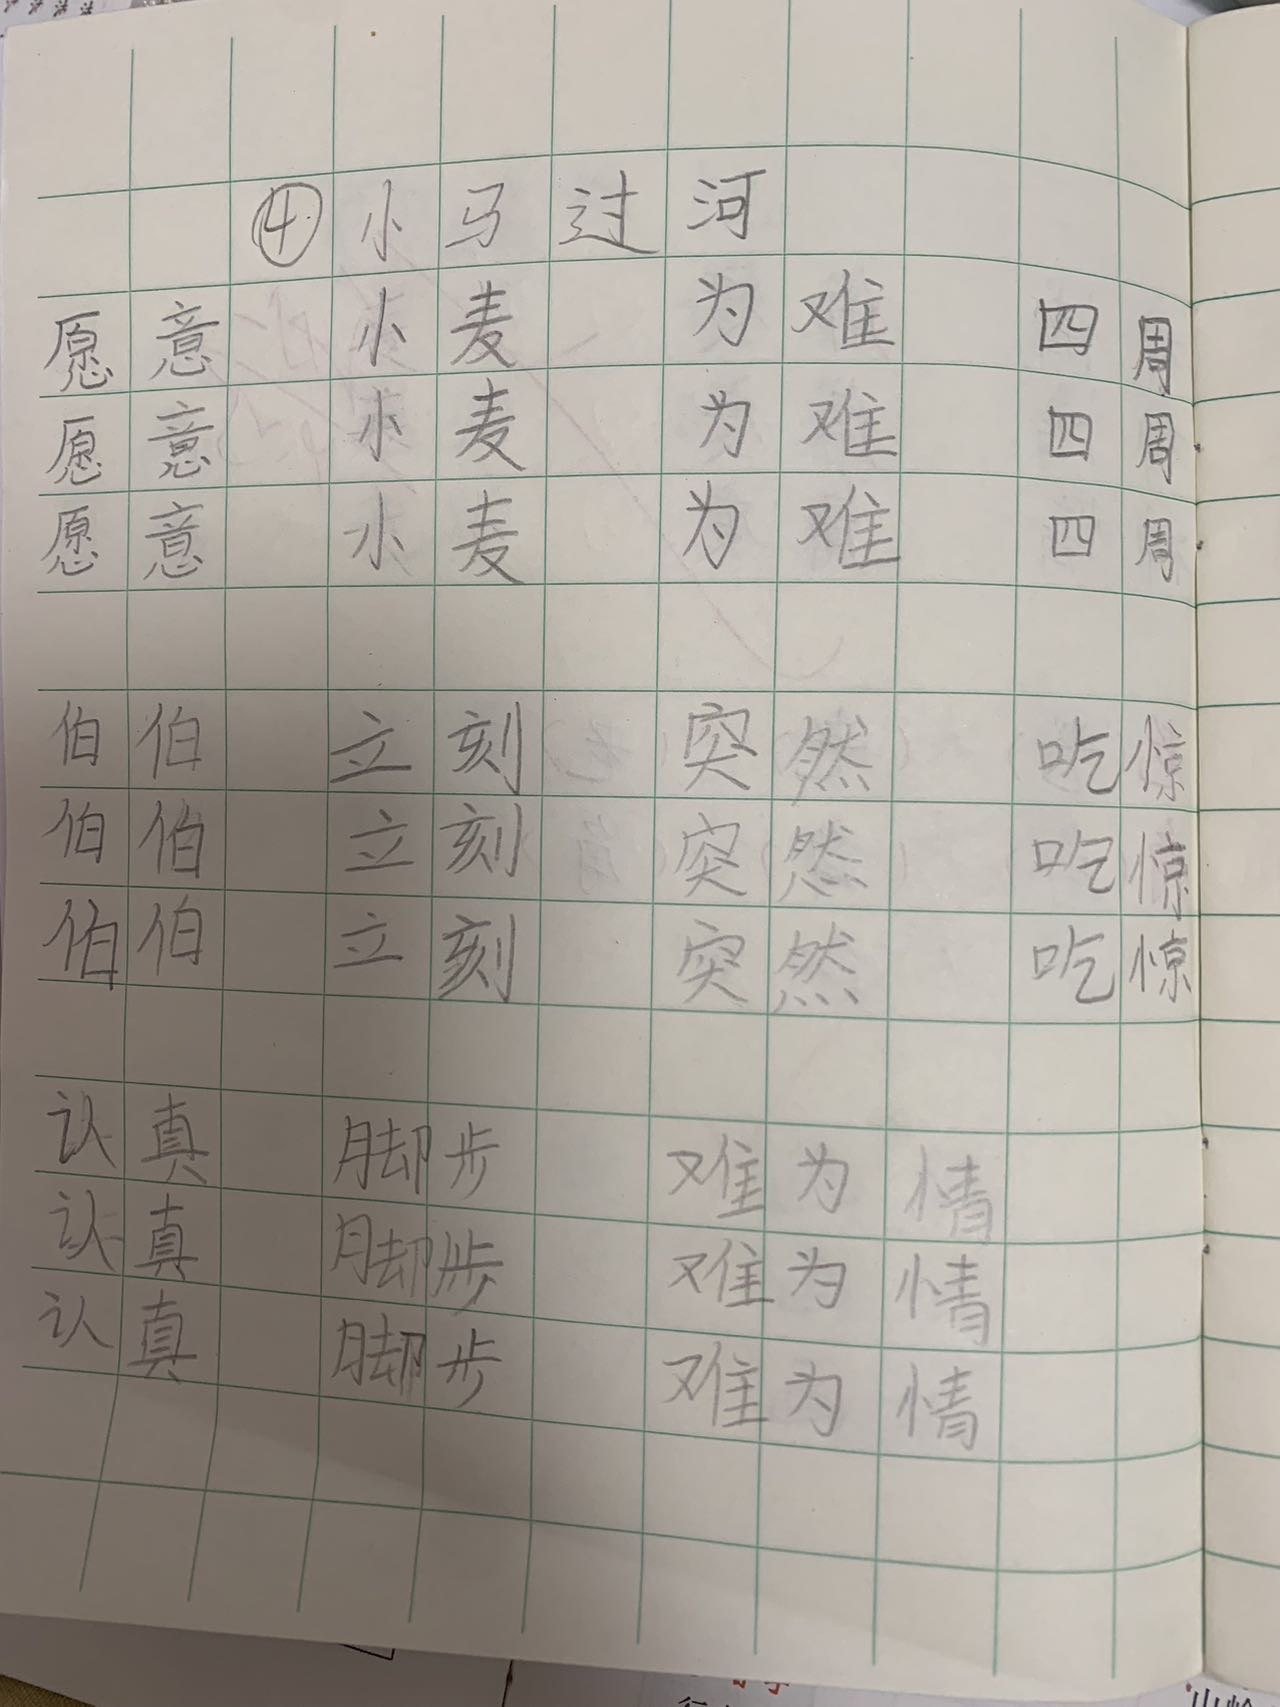 ④小马过河
愿意 小麦 为难 四周
愿意 小麦 为难 四周
愿意 小麦 为难 四周
伯伯 立刻 突然 吃惊
伯伯 立刻 突然 吃惊
伯伯 立刻 突然 吃惊
认真 脚步 难为情
认真 脚步 难为情
认真 脚步 难为情